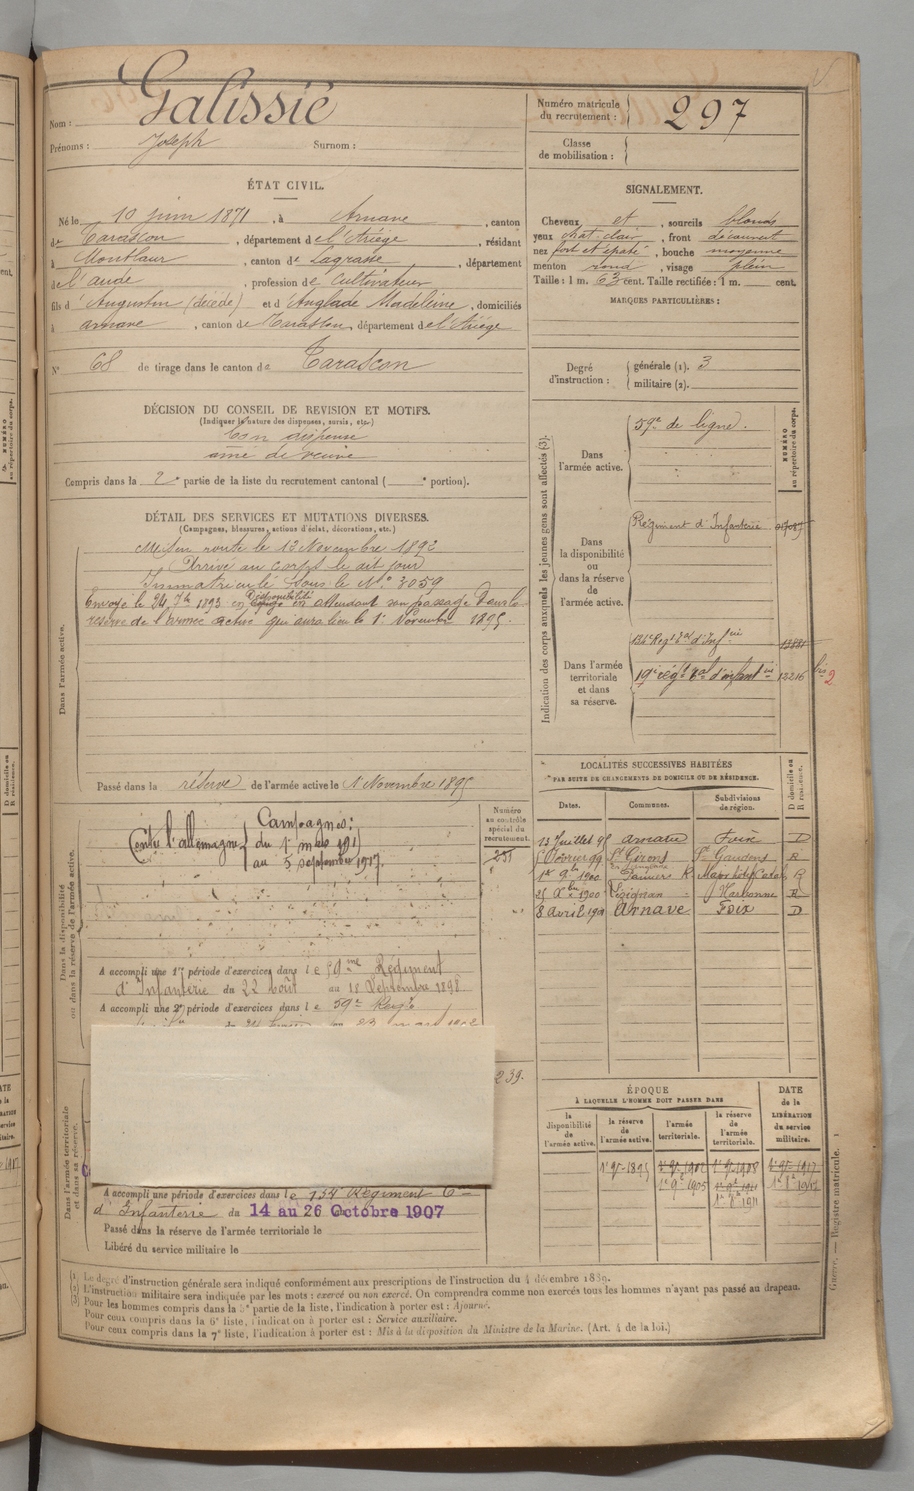 Nom : Galissié
Prénoms : Joseph Surnom :
Numéro matricule du recrutement : 297
Classe de mobilisation :
ÉTAT CIVIL.
Né le 10 juin 1871, à Arnave, canton
de Tarascon, département de l'Ariège, résidant
à Montlaur, canton de Lagrasse, département
de l'aude, profession de Cultivateur
fils d'Augustin (décédé) et d'Anglade Madeleine, domiciliés
à arnave, canton de Tarascon, département de l'Ariège
N° 68 de tirage dans le canton de Tarascon
SIGNALEMENT.
Cheveux et, sourcils blonds
yeux chat. clair, front découvert
nez fort et épaté, bouche moyenne
menton rond, visage plein
Taille : 1 m. 63 cent. Taille rectifiée : 1 m. cent.
MARQUES PARTICULIÈRES :
Degré d'instruction : générale (1). 3
militaire (2).
DÉCISION DU CONSEIL DE REVISION ET MOTIFS.
(Indiquer la nature des dispenses, sursis, etc.)
Bon dispensé
aîné de veuve
Compris dans la 2e partie de la liste du recrutement cantonal ( e portion).
DÉTAIL DES SERVICES ET MUTATIONS DIVERSES.
(Campagnes, blessures, actions d'éclat, décorations, etc.)
Dans l'armée active.
Mis en route le 12 Novembre 1892
Arrivé au corps le dit jour
Immatriculé sous le N° 3059
Envoyé le 24 7bre 1893 en disponibilité en attendant son passage dans la
réserve de l'armée active qui aura lieu le 1er Novembre 1895.
Passé dans la réserve de l'armée active le 1 Novembre 1895
Indication des corps auxquels les jeunes gens sont affectés (3).
NUMÉRO au répertoire du corps.
Dans l'armée active.
59e de ligne.
Dans la disponibilité ou dans la réserve de l'armée active.
Régiment d'Infanterie
Dans l'armée territoriale et dans sa réserve.
134e Regt Tal d'Infrie
19e régt tal d'infantrie 12216 bis 2
LOCALITÉS SUCCESSIVES HABITÉES
PAR SUITE DE CHANGEMENTS DE DOMICILE OU DE RÉSIDENCE.
Dates. Communes. Subdivisions de région. D domicile ou R résidence.
13 Juillet 95 Arnave Foix D
5 Février 99 St Girons St Gaudens R
1er 9bre 1900
25 Xbre 1900 Lézignan Narbonne R
8 avril 1901 Arnave Foix D
Dans la disponibilité ou dans la réserve de l'armée active.
Numéro au contrôle spécial du recrutement.
251
Campagnes :
Contre l'allemagne du 1er
au 5 septembre 1917.
A accompli une 1re période d'exercices dans le 59ème Régiment
d'Infanterie du 22 Août au 18 Septembre 1898
A accompli une 2e période d'exercices dans le 59e
239.
Dans l'armée territoriale et dans sa réserve.
A accompli une période d'exercices dans le 134e Régiment
d'Infanterie du 14 au 26 Octobre 1907
Passé dans la réserve de l'armée territoriale le
Libéré du service militaire le
ÉPOQUE
À LAQUELLE L'HOMME DOIT PASSER DANS
la disponibilité de l'armée active. la réserve de l'armée active. l'armée territoriale. la réserve de l'armée territoriale.
DATE de la LIBÉRATION du service militaire.
(1) Le degré d'instruction générale sera indiqué conformément aux prescriptions de l'instruction du 4 décembre 1889.
(2) L'instruction militaire sera indiquée par les mots : exercé ou non exercé. On comprendra comme non exercés tous les hommes n'ayant pas passé au drapeau.
(3) Pour les hommes compris dans la 5e partie de la liste, l'indication à porter est : Ajourné.
Pour ceux compris dans la 6e liste, l'indication à porter est : Service auxiliaire.
Pour ceux compris dans la 7e liste, l'indication à porter est : Mis à la disposition du Ministre de la Marine. (Art. 4 de la loi.)
Guerre. — Registre matricule. 1